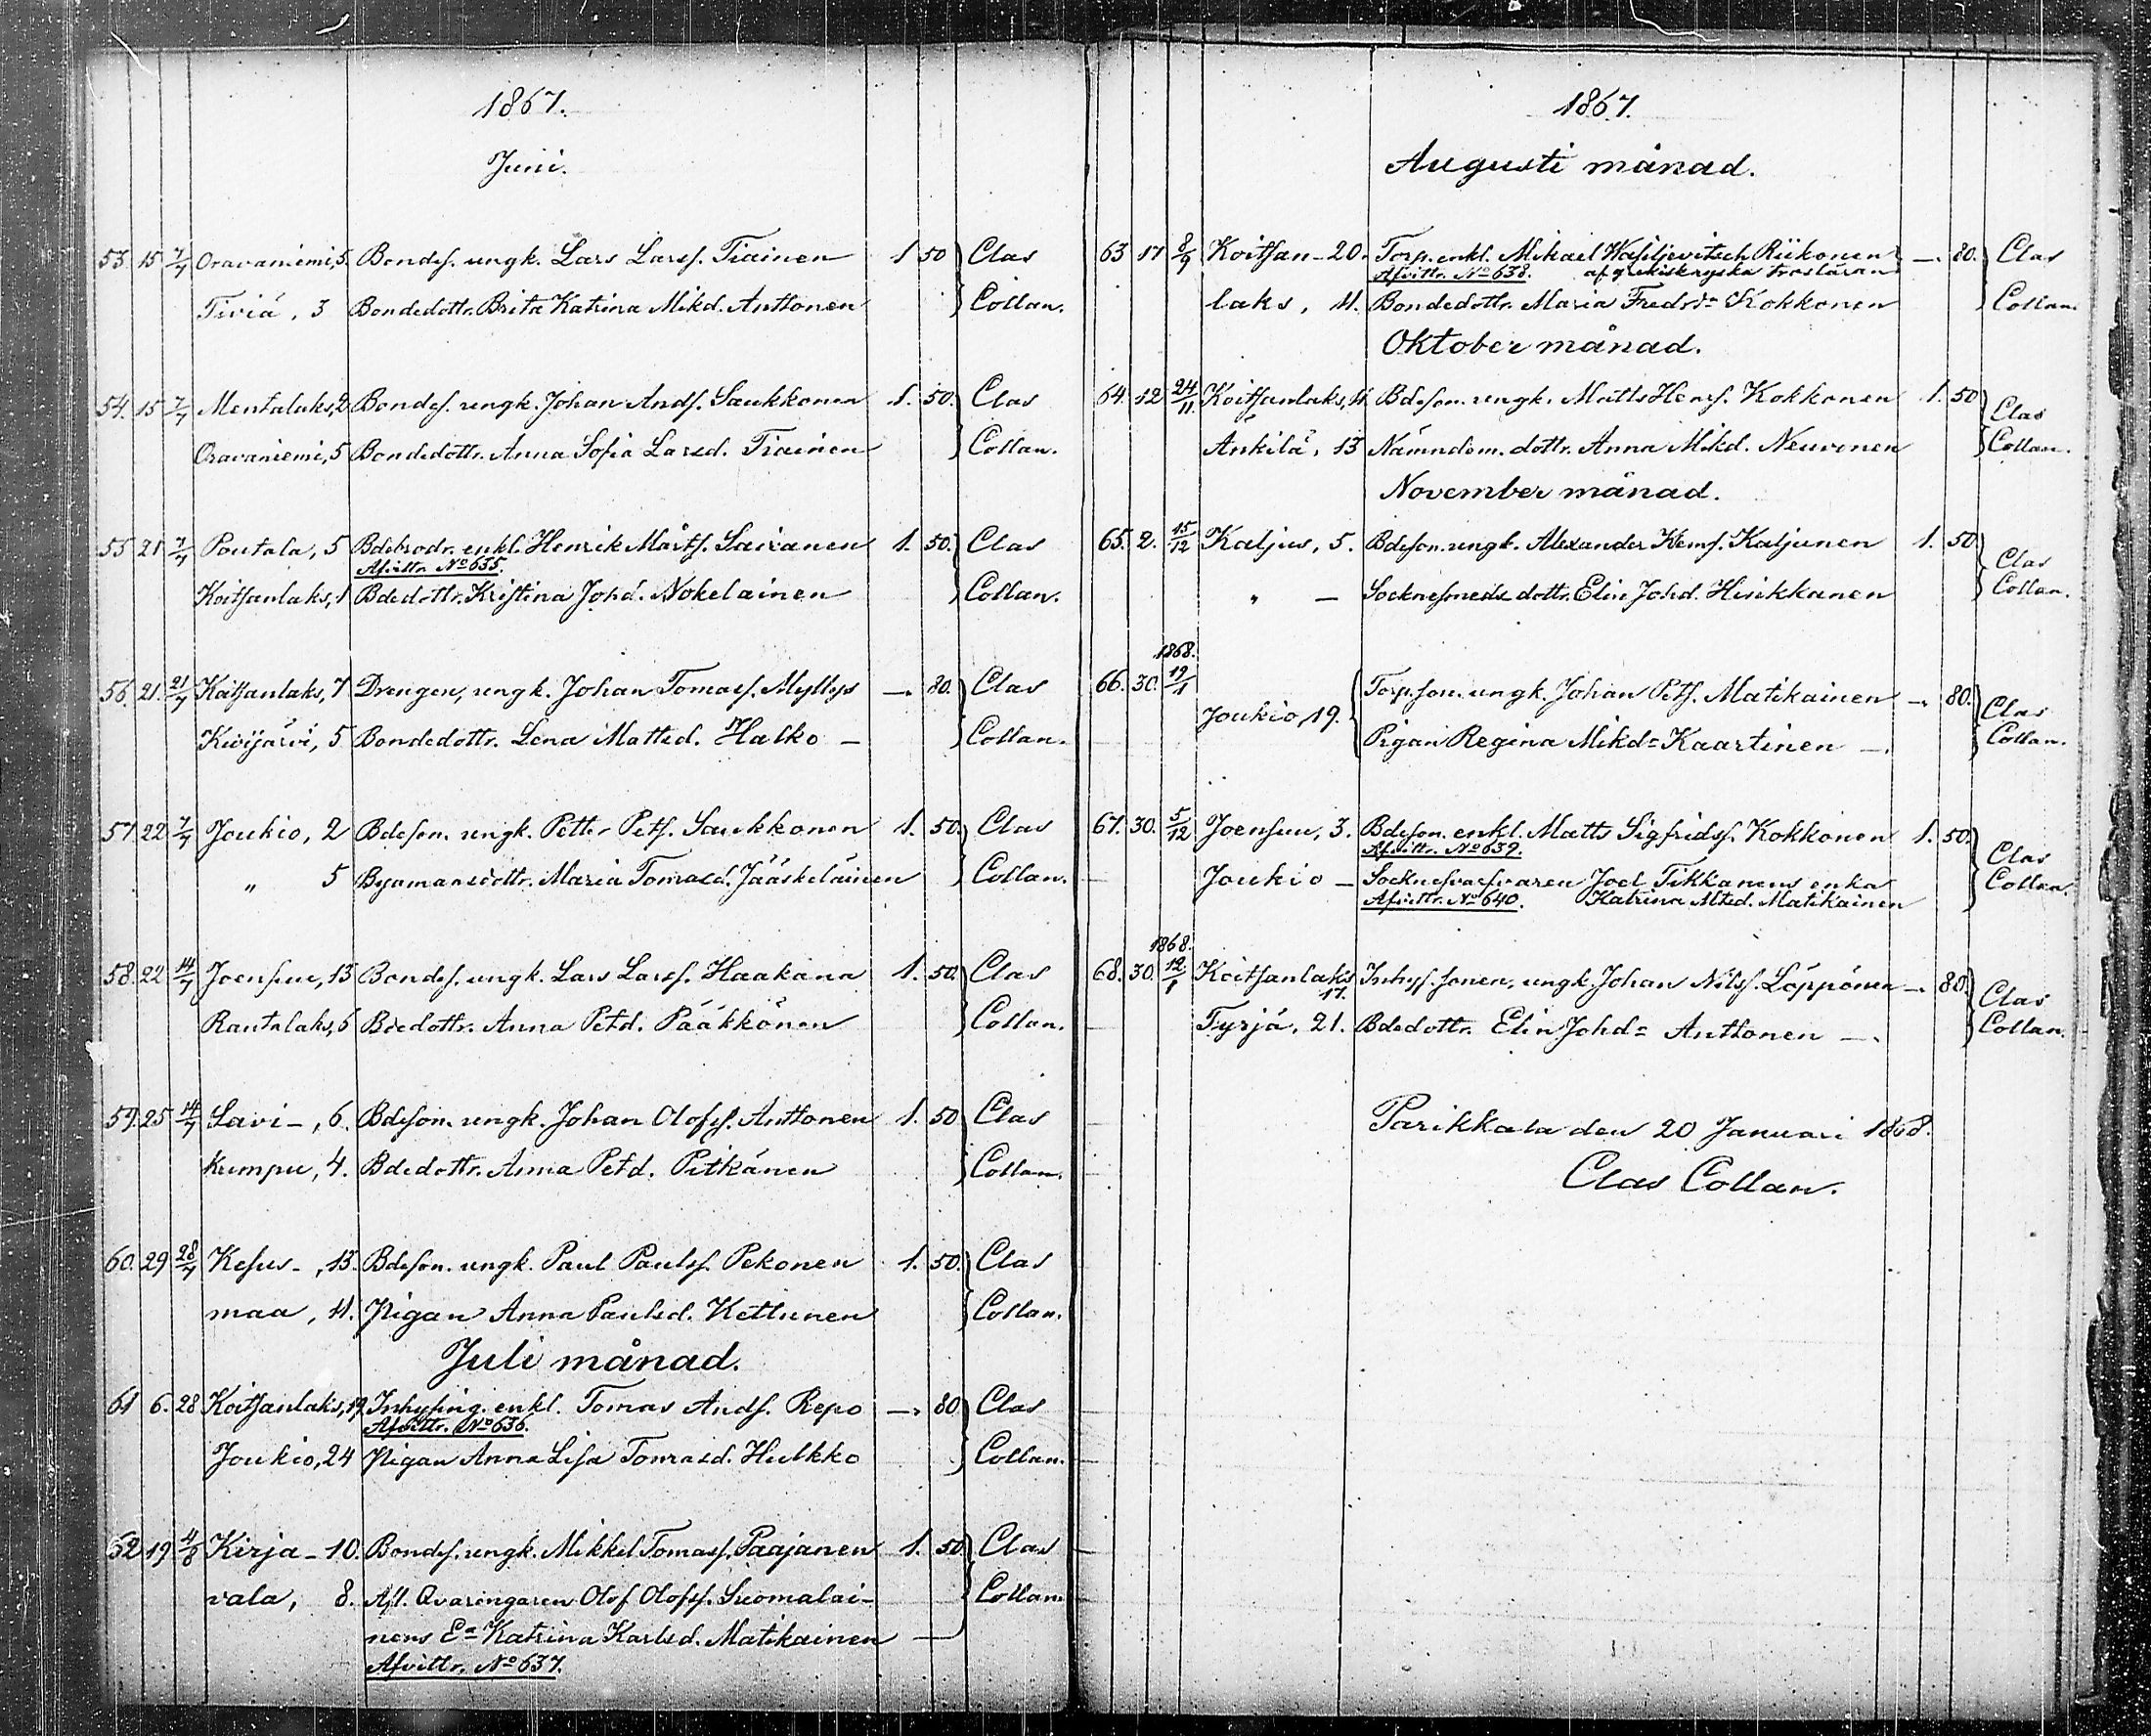 1867.
Juni.
53. 15 7/7 Oravaniemi, 5. Bondes. ungk. Lars Larss. Tiainen 1 50 Clas
Tiviä, 3 Bondedottr. Brita Katrina Mikd. Anttonen Collan.
54. 15 7/7 Mentalaks, 2 Bondes. ungk. Johan Ands. Saukkonen 1. 50. Clas
Oravaniemi, 5 Bondedottr. Anna Sofia Larsd. Tiainen Collan.
55 21 7/7 Poutala, 5 Bdebrodr. enkl. Henrik Mårts. Sairanen 1. 50. Clas
Afvittr. No 635.
Koitsanlaks, 1 Bdedottr. Kristina Johd. Nokelainen Collan.
56. 21. 21/7 Koitsanlaks, 7 Drengen, ungk. Johan Tomass. Myllys —. 80. Clas
Kivijärvi, 5 Bondedottr. Lena Mattsd. Halko — Collan.
57 22 7/7 Joukio, 2 Bdeson. ungk. Petter Pets. Saukkonen 1. 50. Clas
„ 5 Byamansdottr. Maria Tomasd. Jääskeläinen Collan.
58. 22 14/7 Joensuu, 13 Bondes. ungk. Lars Larss. Haakana 1. 50. Clas
Rantalaks, 6 Bdedottr. Anna Petd. Pääkkönen Collan.
59. 25 14/7 Savi-, 6. Bdeson. ungk. Johan Olofss. Anttonen 1. 50 Clas
kumpu, 4. Bdedottr. Anna Petd. Pitkänen Collan.
60. 29 28/7 Kesus-, 13. Bdeson. ungk. Paul Paulss. Pekonen 1. 50. Clas
maa, 11. Pigan Anna Paulsd. Kettunen Collan.
Juli månad.
61 6. 28 Koitsanlaks, 19 Inhysing. enkl. Tomas Ands. Repo —. 80 Clas
Afvittr. No 636.
Joukio, 24 Pigan Anna Lisa Tomasd. Hulkko Collan.
62 19 4/8 Kirja- 10. Bondes. ungk. Mikkel Tomass. Paajanen 1. 50 Clas
vala, 8. Afl. Qvaringaren Olof Olofss. Suomalai- Collan
nens Ea Katrina Karlsd. Matikainen
Afvittr. No 637.
1867.
Augusti månad.
63 17 8/9 Koitsan- 20. Torp. enkl. Mikael Wasiljevitsch Riikonen —. 80. Clas
Afvittr. No 638. af grekiskryska trosläran
laks, 11. Bondedottr. Maria Fredrd= Kokkonen Collan.
Oktober månad.
64. 12 24/11 Koitsanlaks, 11. Bdeson. ungk. Matts Henrs. Kokkonen 1. 50 Clas
Änkilä, 13 Nämndem. dottr. Anna Mikd. Neuvonen Collan.
November månad.
65. 2. 15/12 Kaljus, 5. Bdeson. ungk. Alexander Hemss. Kaljunen 1. 50 Clas
„ — Socknesmeds dottr. Elin Johd. Hinkkanen Collan.
1868.
66. 30. 19/1 Torp. son. ungk. Johan Pets. Matikainen —. 80. Clas
Joukio, 19.
Pigan Regina Mikd= Kaartinen —. Collan.
67. 30. 5/12 Joensuu, 3. Bdeson. enkl. Matts Sigfridss. Kokkonen 1. 50. Clas
Afvittr. No 639.
Joukio — Joel Tikkanens enka Collan.
Afvittr. No 640. Katrina Mtsd. Matikainen
1868.
68. 30. 12/1 Koitsanlaks 17. Inhys. sonen, ungk. Johan Nilss. Löppönen —. 80. Clas
Tyrjä, 21. Bdedottr. Elin Johd= Anttonen —. Collan.
Parikkala den 20 Januari 1868.
Clas Collan.